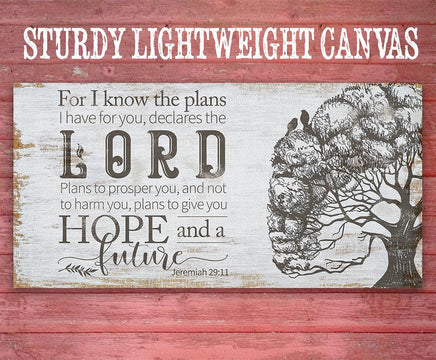 STURDY LIGHTWEIGHT CANVAS
For I know the plans
I have for you, declares the
LORD
Plans to prosper you, and not
to harm you, plans to give you
HOPE and a
future
Jeremiah 29:11